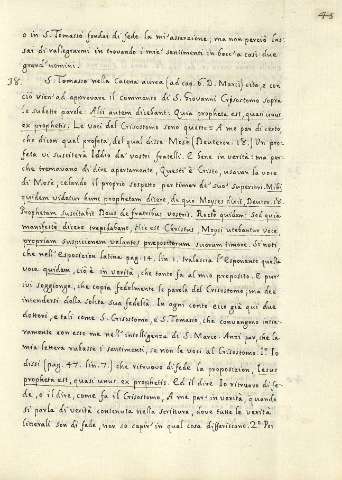 45
o in S. Tomasso fondar di fede la mi'asserzione; ma non perciò las-
sai di rallegrarmi in trovando i mie' sentimenti in bocc'a così due
grand'uomini.
38. S. Tomasso nella Catena aurea (ad cap. 6. D. Marci) cita, e con
ciò vien'ad approvare il commento di S. Giovanni Crisostomo sopra
le sudette parole: Alii autem dicebant: Quia propheta est, quasi unus
ex prophetis. Le voci del Crisostomo sono queste: A me par di certo
che dicon quel profeta, del qual disse Mosè (Deuteron. 18.) Un pro-
feta vi susciterà Iddio da' vostri fratelli. E bene in verità: ma per-
che tremavano di dire apertamente, Questi è Cristo, usavan la voce
di Mosè, celando il proprio sospetto per timor de' suo' superiori. Mihi
quidem videtur hunc prophetam dicere, de quo Moyses dixit, Deuter. 18.
Prophetam suscitabit Deus de fratribus vestris. Recte quidem: Sed quia
manifeste dicere trepidabant, Hic est Christus, Moysi utebantur voce
propriam suspicionem velantes praepositorum suorum timore. Si noti
che nell'Esposizion latina pag. 14. lin. 1. tralascia l'Esponente quella
voce quidem, cioè in verità, che tanto fa al mio proposito. E pur'
ivi soggionge, che copia fedelmente le parole del Crisostomo; ma dee
intendersi della solita sua fedeltà. In ogni conto ecco già qui due
dottori, e tali come S. Crisostomo, e S. Tomasso, che convengono inte-
ramente con esso me nell'intelligenza di S. Marco. Anzi par, che la
mia lettera rubasse i sentimenti, se non le voci al Crisostomo. 1.° Io
dissi (pag. 47. lin. 7.) che ritruovo di fede la proposizion, Iesus
propheta est, quasi unus ex prophetis. Ed il dire Io ritruovo di fe-
de, o il dire, come fa il Crisostomo, A me par: in verità, quando
si parla di verità contenuta nella scrittura, dove tutte le verità
litterali son di fede, non so capir'in qual cosa differiscono. 2.° Per